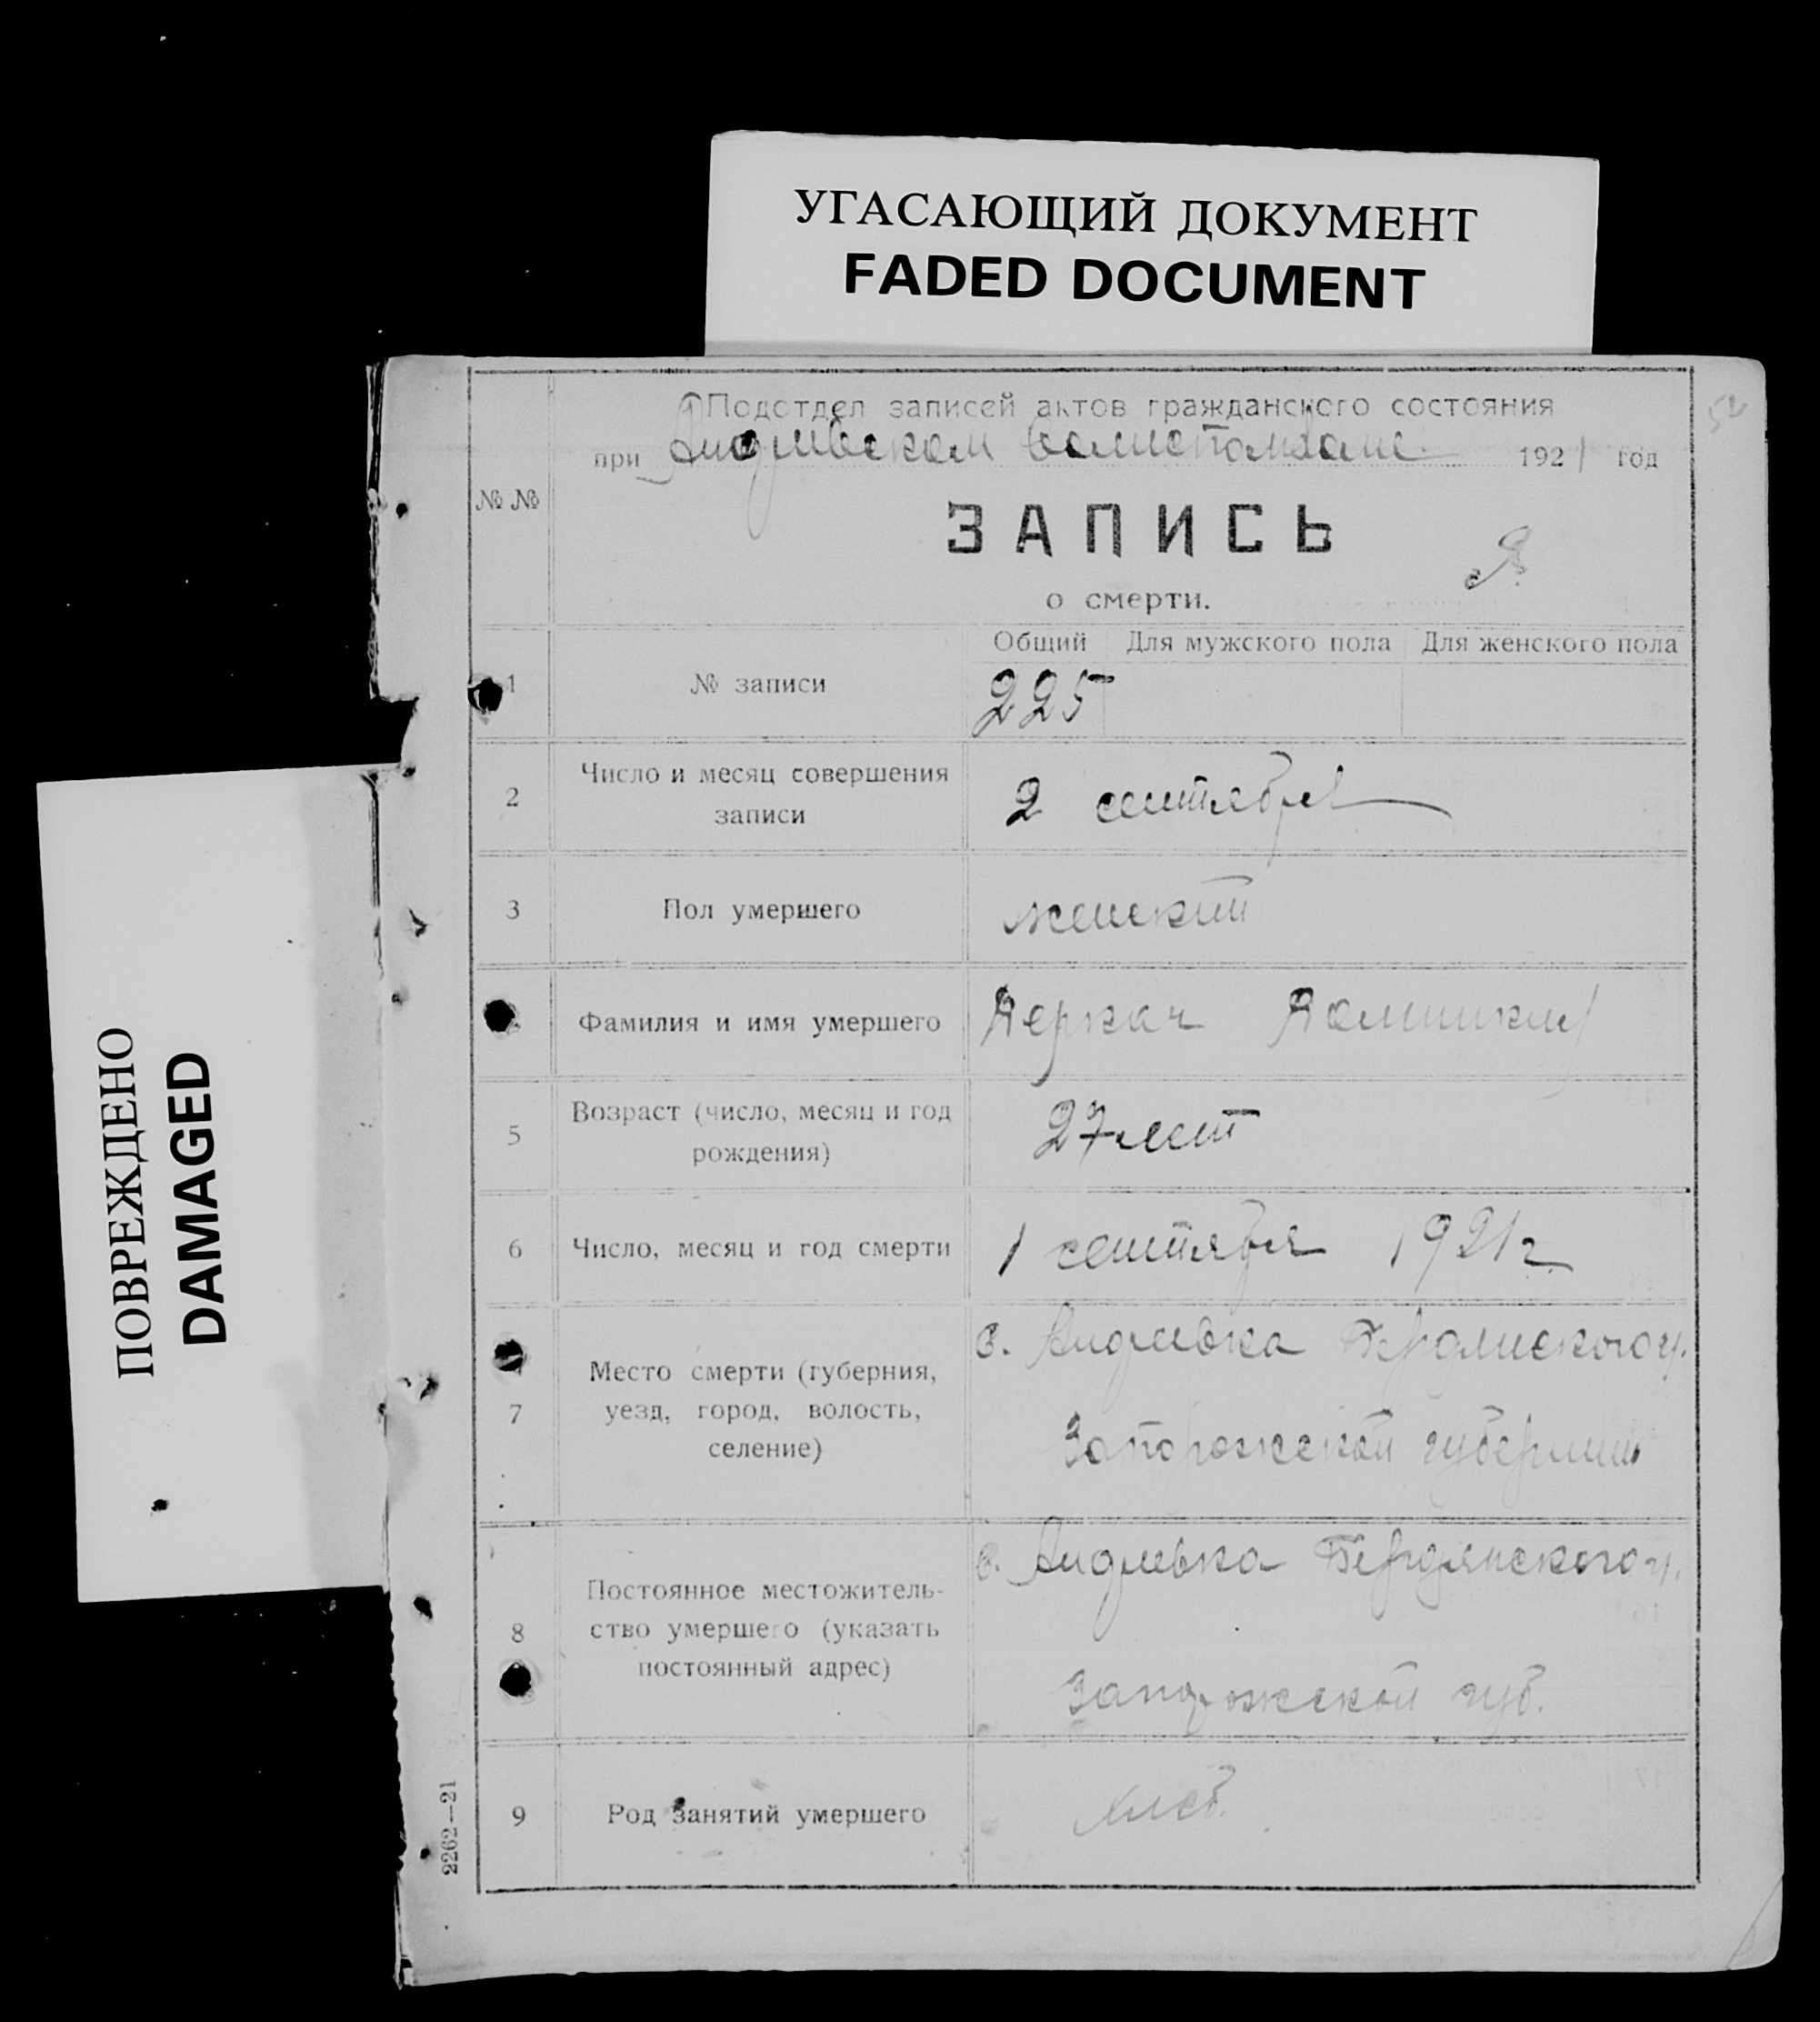 УГАСАЮЩИЙ ДОКУМЕНТ
FADED DOCUMENT
ПОВРЕЖДЕНО
DAMAGED
52
Подотдел записей актов гражданского состояния
при Андреевском Волисполкоме 1921 год
№ №
ЗАПИСЬ
о смерти.
Общий Для мужского пола Для женского пола
1 № записи 225
2 Число и месяц совершения
записи 2 сентября
3 Пол умершего женский
Фамилия и имя умершего Деркач Домникия
5 Возраст (число, месяц и год
рождения) 27 лет
6 Число, месяц и год смерти 1 сентября 1921 г.
с. Андреевка Бердянского у.
7 Место смерти (губерния,
уезд, город, волость,
селение) Запорожской губернии
с. Андреевка Бердянского у.
8 Постоянное местожитель-
ство умершего (указать
постоянный адрес) Запорожской губ.
9 Род занятий умершего
2262—21